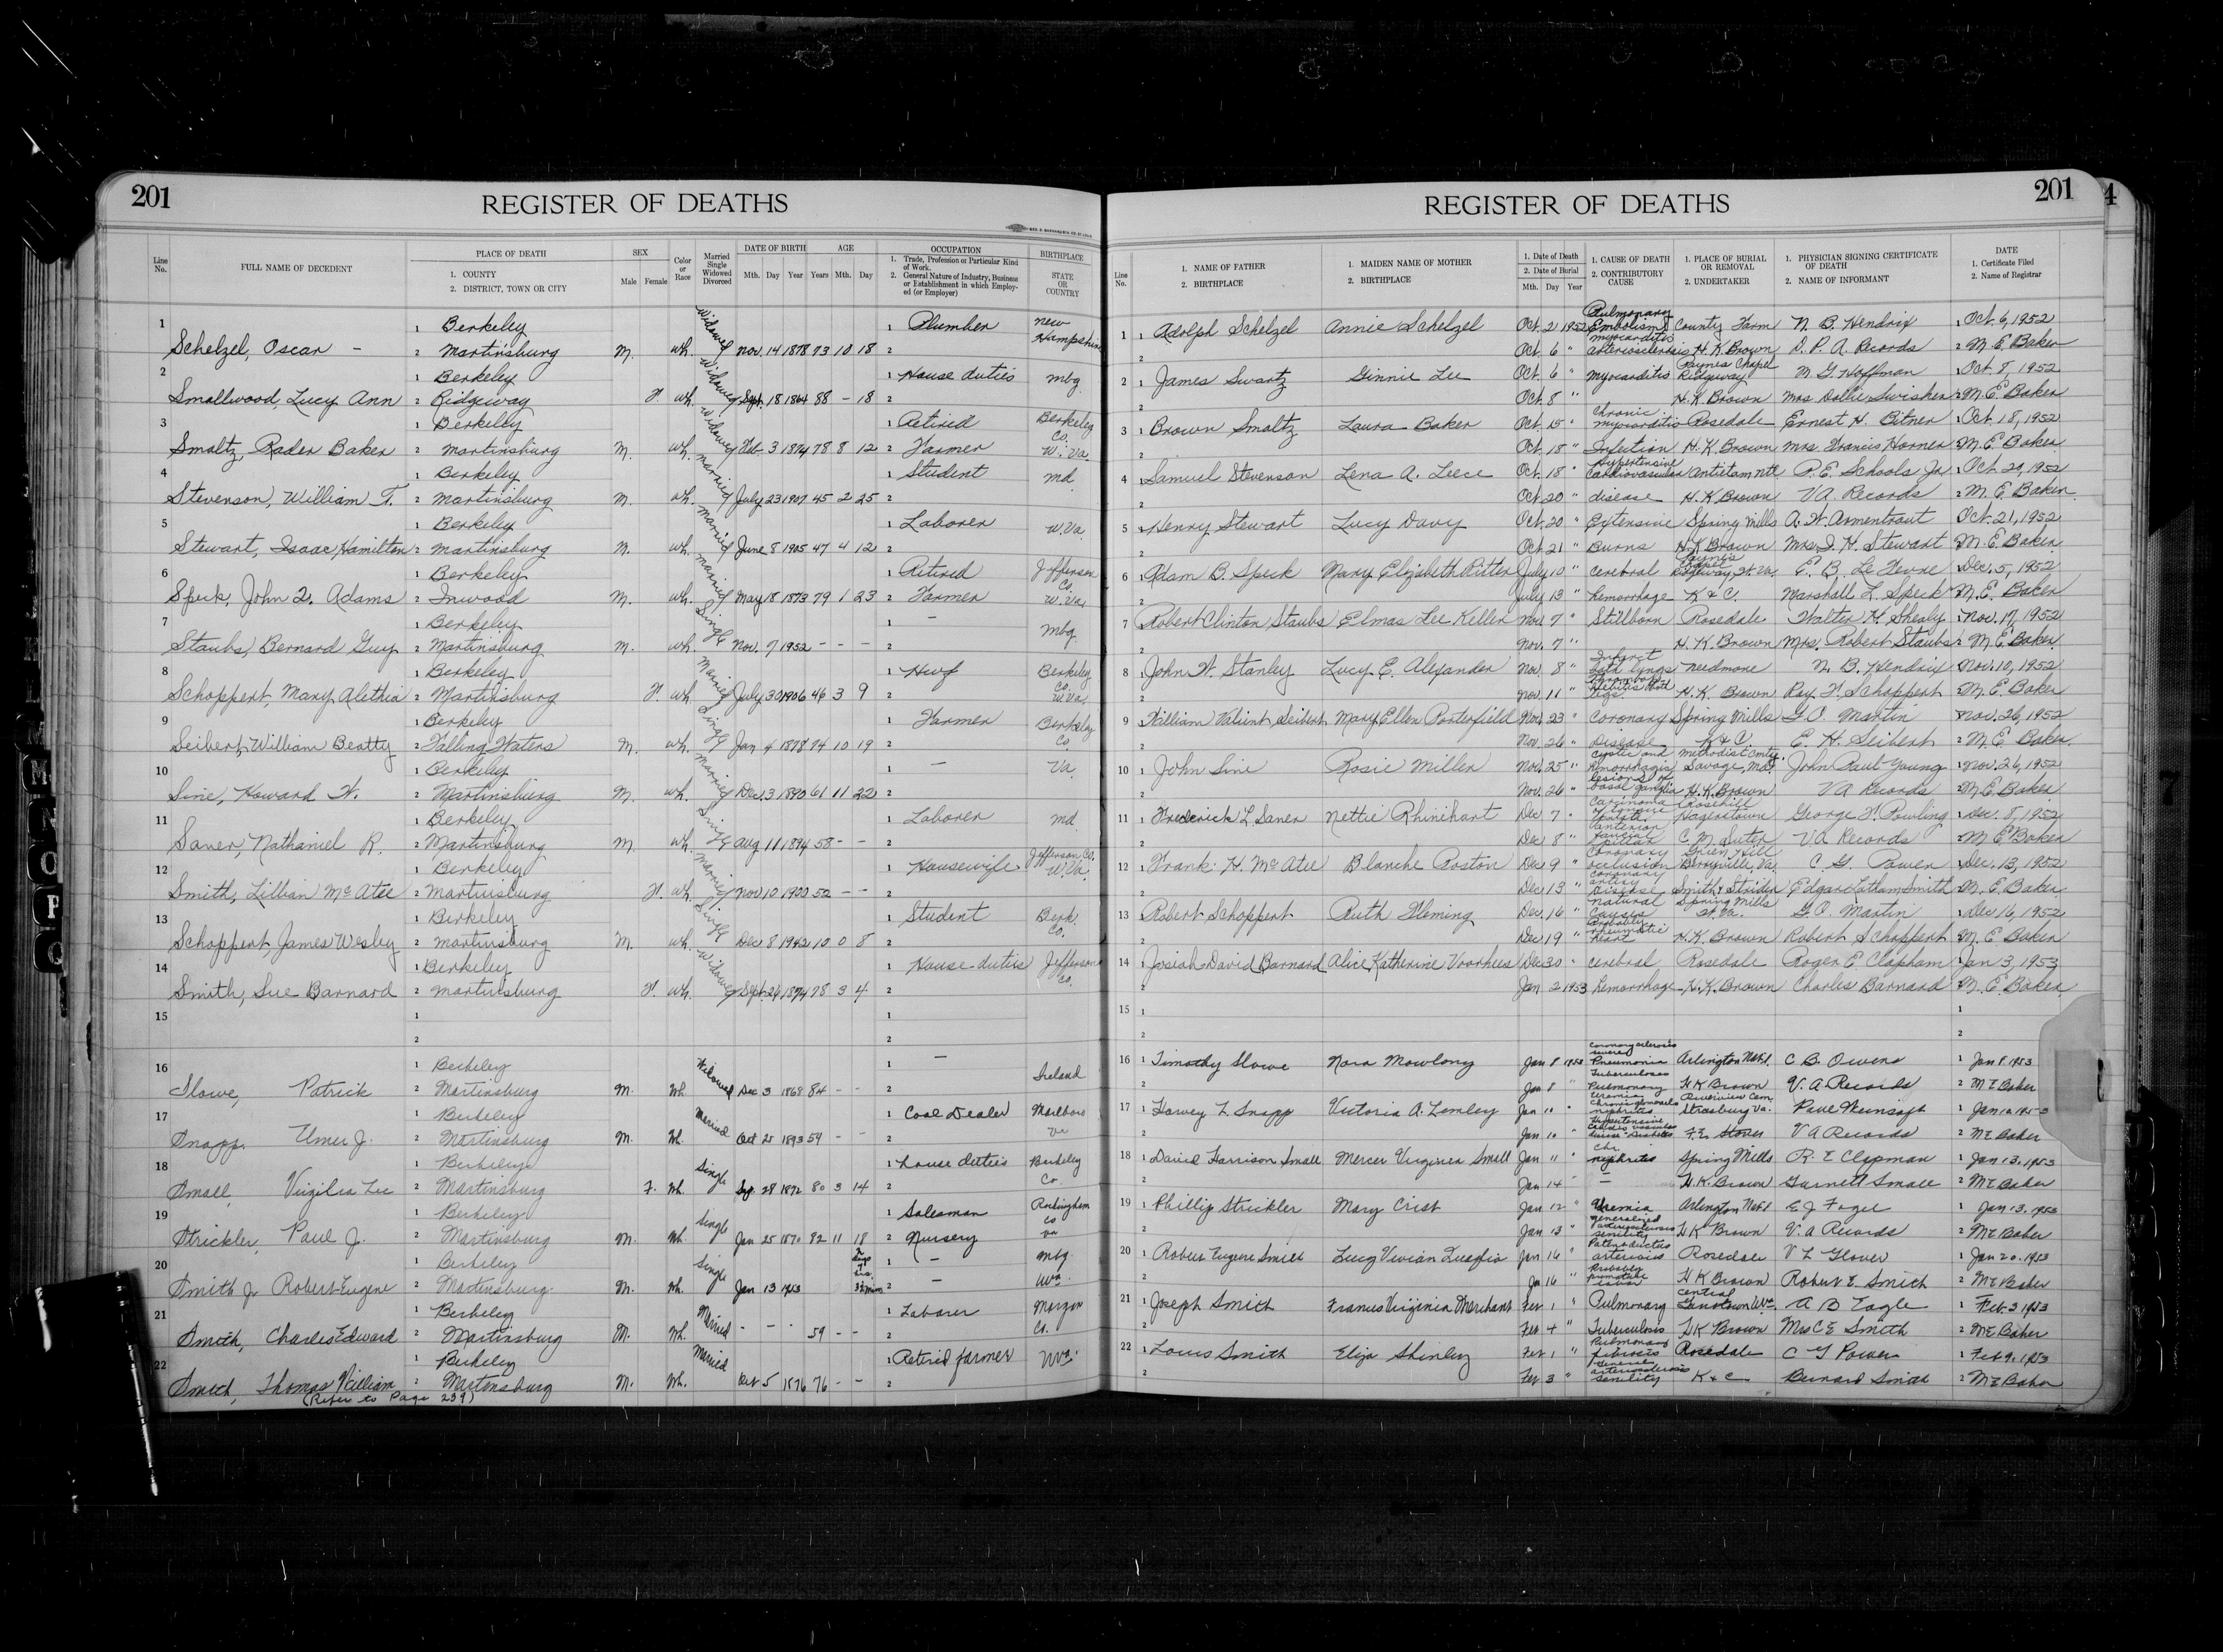 201
REGISTER OF DEATHS
Line No.
FULL NAME OF DECEDENT
PLACE OF DEATH
1. COUNTY
2. DISTRICT, TOWN OR CITY
SEX
Male Female
Color or Race
Married Single Widowed Divorced
DATE OF BIRTH
Mth. Day Year
AGE
Years Mth. Day
OCCUPATION
1. Trade, Profession or Particular Kind of Work.
2. General Nature of Industry, Business or Establishment in which Employed (or Employer)
BIRTHPLACE
STATE OR COUNTRY
1 1 Berkeley 1 Plumber New Hampshire
Schelzel, Oscar - 2 Martinsburg M. Wh. Widowed Nov. 14 1878 73 10 18 2
2 1 Berkeley 1 House duties Mbg
Smallwood, Lucy Ann 2 Ridgeway F. Wh. Widowed Sept. 18 1864 88 - 18 2
3 1 Berkeley 1 Retired Berkeley Co. W. Va.
Smaltz, Rader Baker 2 Martinsburg M. Wh. Widowed Feb. 3 1874 78 8 12 2 Farmer
4 1 Berkeley 1 Student Md
Stevenson, William T. 2 Martinsburg M. Wh. Married July 23 1907 45 2 25 2
5 1 Berkeley 1 Laborer W. Va.
Stewart, Isaac Hamilton 2 Martinsburg M. Wh. Married June 8 1905 47 4 12 2
6 1 Berkeley 1 Retired Jefferson Co. W. Va.
Speck, John Q. Adams 2 Inwood M. Wh. Married May 18 1873 79 1 23 2 Farmer
7 1 Berkeley 1 - Mbg
Staubs, Bernard Guy 2 Martinsburg M. Wh. Single Nov. 7 1952 - - - 2
8 1 Berkeley 1 Hwf Berkeley Co. W. Va.
Schoppert, Mary Alethia 2 Martinsburg F. Wh. Married July 30 1906 46 3 9 2
9 1 Berkeley 1 Farmer Berkeley Co.
Seibert, William Beatty 2 Falling Waters M. Wh. Single Jan 4 1878 74 10 19 2
10 1 Berkeley 1 - Va
Sine, Howard W. 2 Martinsburg M. Wh. Married Dec. 3 1890 61 11 22 2
11 1 Berkeley 1 Laborer Md.
Saner, Nathaniel R. 2 Martinsburg M. Wh. Single Aug 11 1894 58 - - 2
12 1 Berkeley 1 Housewife Jefferson Co. W. Va.
Smith, Lillian McAtee 2 Martinsburg F. Wh. Married Nov 10 1900 52 - - 2
13 1 Berkeley 1 Student Berk. Co.
Schoppert, James Wesley 2 Martinsburg M. Wh. Single Dec 8 1942 10 0 8 2
14 1 Berkeley 1 House duties Jefferson Co.
Smith, Sue Barnard 2 Martinsburg F. Wh. Widowed Sept. 26 1874 78 3 4 2
15 1 1
2 2
16 1 Berkeley 1 - Ireland
Slowe, Patrick 2 Martinsburg M. Wh. Widowed Dec 3 1868 84 - - 2
17 1 Berkeley 1 Coal Dealer Marlboro Va
Snapp, Elmer J. 2 Martinsburg M. Wh. Married Oct 25 1893 59 - - 2
18 1 Berkeley 1 house duties Berkeley Co.
Small, Virgilia Lee 2 Martinsburg F. Wh. Single Sep. 28 1872 80 3 14 2
19 1 Berkeley 1 Salesman Rockingham Co Va
Strickler, Paul J. 2 Martinsburg M. Wh. Single Jan 25 1870 82 11 18 2 Nursery
20 1 Berkeley 1 - Mbg. WVa.
Smith Jr Robert Eugene 2 Martinsburg. M. Wh. Single Jan 13 1953 2 -
21 1 Berkeley 1 Laborer Morgan Co.
Smith, Charles Edward 2 Martinsburg M. Wh. Married - - - 59 - - 2
22 1 Berkeley 1 Retired farmer WVa.
Smith, Thomas William 2 Martinsburg M. Wh. Married Oct 5 1876 76 - - 2
(Refer to Page 239)
201
REGISTER OF DEATHS
Line No.
1. NAME OF FATHER
2. BIRTHPLACE
1. MAIDEN NAME OF MOTHER
2. BIRTHPLACE
1. Date of Death
2. Date of Burial
Mth. Day Year
1. CAUSE OF DEATH
2. CONTRIBUTORY CAUSE
1. PLACE OF BURIAL OR REMOVAL
2. UNDERTAKER
1. PHYSICIAN SIGNING CERTIFICATE OF DEATH
2. NAME OF INFORMANT
DATE
1. Certificate Filed
2. Name of Registrar
1 1 Adolph Schelzel Annie Schelzel Oct. 2 1952 Pulmonary Embolism County Farm N. B. Hendrix 1 Oct. 6, 1952
2 Oct. 6 " myocarditis arteriosclerosis H. K. Brown D. P. A. Records 2 M. E. Baker
2 1 James Swartz Ginnie Lee Oct. 6 " myocarditis Paynes Chapel Ridgeway M. G. Hoffman 1 Oct 8, 1952
2 Oct. 8 " H. K. Brown Mrs Dollie Swisher 2 M. E. Baker
3 1 Brown Smaltz Laura Baker Oct. 15 " Chronic myocarditis Rosedale Ernest H. Bitner 1 Oct 18, 1952
2 Oct. 18 " Infection H. K. Brown Mrs Francis Horner 2 M. E. Baker
4 1 Samuel Stevenson Lena A. Leese Oct. 18 " Hypertensive Cardiovascular Antietam Ntl. P. E. Schools Jr. 1 Oct. 29, 1952
2 Oct. 20 " disease H. K. Brown VA. Records 2 M. E. Baker
5 1 Henry Stewart Lucy Davy Oct. 20 " Extensive Spring Mills A. W. Armentrout Oct. 21, 1952
2 Oct 21 " Burns H. K. Brown Mrs. I. H. Stewart 2 M. E. Baker
6 1 Adam B. Speck Mary Elizabeth Ritter July 10 " cerebral Paynes Chapel Ridgeway, W. Va. E. B. Le Fevre 1 Dec. 5, 1952
2 July 13 " hemorrhage K & C. Marshall L. Speck 2 M. E. Baker
7 1 Robert Clinton Staubs Elmas Lee Keller Nov. 7 " Stillborn Rosedale Walter H. Shealy 1 Nov. 17, 1952
2 Nov. 7 " H. K. Brown Mrs. Robert Staubs 2 M. E. Baker
8 1 John W. Stanley Lucy E. Alexander Nov. 8 " Infarct both lungs Needmore N. B. Hendrix Nov. 10, 1952
2 Nov. 11 " H. K. Brown Ray F. Schoppert 2 M. E. Baker
9 1 William Valient Seibert Mary Ellen Porterfield Nov. 23 " coronary Spring Mills G. O. Martin Nov. 26, 1952
2 Nov. 26 " Disease K & C. E. H. Seibert 2 M. E. Baker
10 1 John Sine Rosie Miller Nov. 25 " cystic and hemorrhagic Methodist Cmty. Savage, Md. John Paul Young 1 Nov. 26, 1952
2 Nov. 26 " lesions of basal ganglia H. K. Brown VA Records 2 M. E. Baker
11 1 Frederick L. Saner Nettie Rhinehart Dec 7 " Carcinoma Rosehill Hagerstown George F. Dowling 1 Dec. 8, 1952
2 Dec 8 " anterior pillar C. M. Suter VA Records 2 M. E. Baker
12 1 Frank H. McAtee Blanche Roston Dec 9 " Coronary occlusion Green Hill Berryville, Va. C. G. Power 1 Dec. 13, 1952
2 Dec 13 " coronary artery disease Smith & Strider Edgar Latham Smith 2 M. E. Baker
13 1 Robert Schoppert Ruth Fleming Dec. 16 " natural causes Spring Mills W. Va. G. O. Martin 1 Dec 16, 1952
2 Dec 19 " Probably rheumatic heart H. K. Brown Robert Schoppert 2 M. E. Baker
14 1 Josiah David Barnard Alice Katherine Voorhees Dec 30 " cerebral Rosedale Roger E. Clapham Jan 3, 1953
2 Jan 2 1953 hemorrhage H. K. Brown Charles Barnard 2 M. E. Baker
15 1 1
2 2
16 1 Timothy Slowe Nora Mowlony Jan 8 1953 Coronary sclerosis severe Pneumonia Arlington Natl. C B. Owens 1 Jan 8. 1953
2 Jan 8 " Tuberculosis Pulmonary H K Brown V. A Records 2 M E Baker
17 1 Harvey L Snapp Victoria A. Lemley Jan 10 " Uremia Chronic nephritis Riverview Cem. Strasburg Va. 1 Jan 12, 1953
2 Jan 10 " Hypertensive disease Diabetes F. E. Stover V A Records 2 M E Baker
18 1 David Harrison Small Mercer Virginia Small Jan 11 " Chr. nephritis Spring Mills R. E Clapman 1 Jan 13, 1953
2 Jan 14 " - H. K. Brown Garnett Small 2 M E Baker
19 1 Phillip Strickler Mary Crist Jan 12 " Uremia Arlington Natl E J 1 Jan 13, 1953
2 Jan 13 " generalized arteriosclerosis senility H K Brown V. A Records 2 M E Baker
20 1 Robert Eugene Smith Lucy Vivian Jan 16 " Patent ductus arteriosis Rosedale V L Glover 1 Jan 20, 1953
2 Jan 16 " Probably H K Brown Robert E. Smith 2 M E Baker
21 1 Joseph Smith Francis Virginia Merchant Feb 1 " Pulmonary Central WVa. A B Eagle 1 Feb. 3 1953
2 Feb 4 " Tuberculosis H K Brown Mrs C E Smith 2 M E Baker
22 1 Louis Smith Eliza Shirley Feb 1 " Pulmonary fibrosis Rosedale C G Power 1 Feb 9, 1953
2 Feb 3 " General arteriosclerosis senility K & C Bernard Smith 2 M E Baker
M
N
O
P
Q